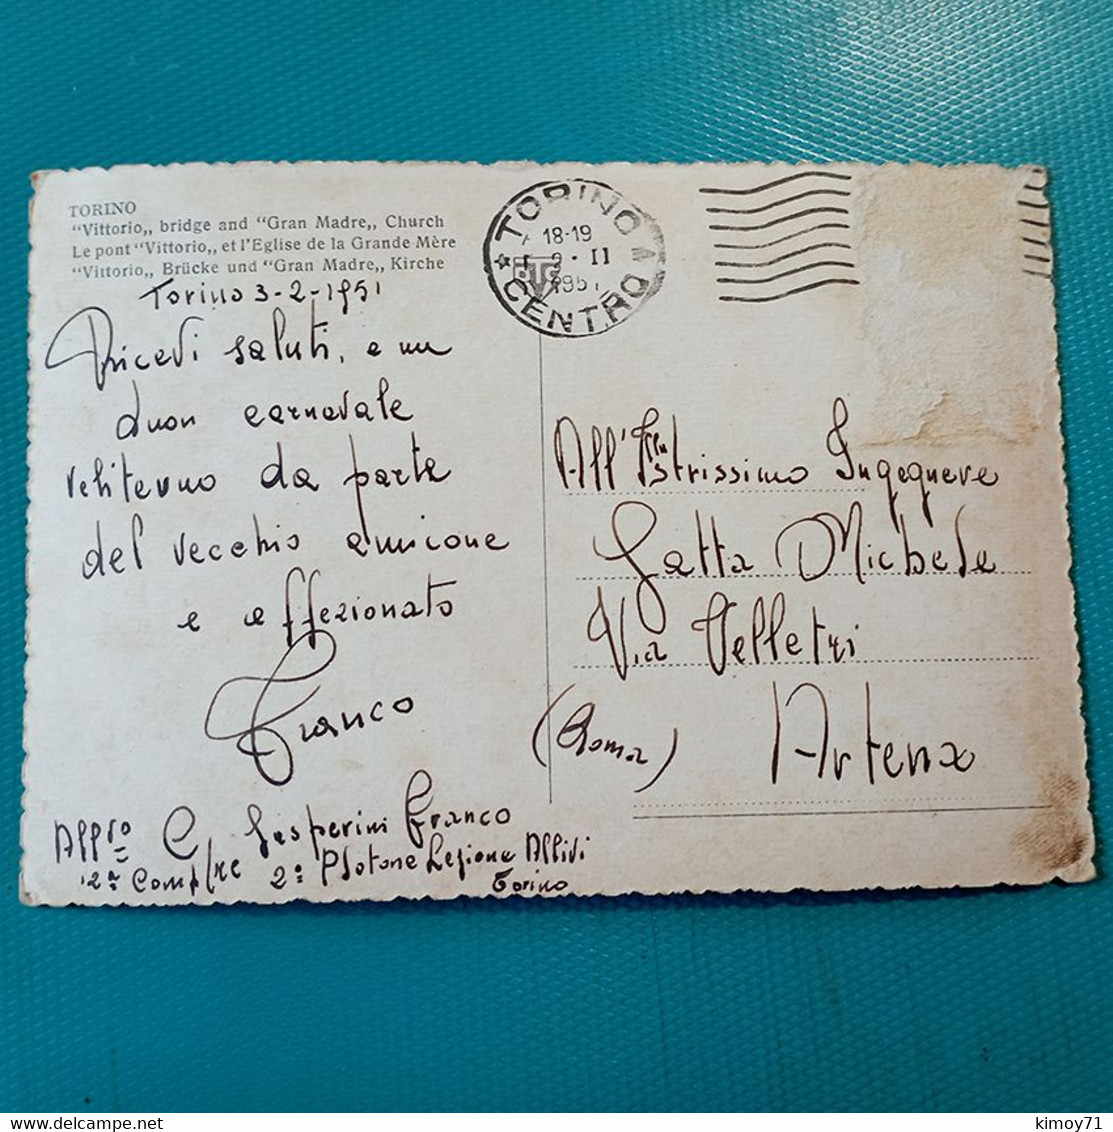 TORINO
"Vittorio,, bridge and "Gran Madre,, Church
Le pont "Vittorio,, et l'Eglise de la Grande Mère
"Vittorio,, Brücke und "Gran Madre,, Kirche
Torino 3-2-1951
Ricevi saluti, e un
buon carnevale
veliterno da parte
del vecchio amicone
e affezionato
Franco
All.vo C. Gasperini Franco
2a Comp. 2° Plotone Legione Allivi
Torino
TORINO
CENTRO
18-19
II
All'Illustrissimo Ingegnere
Gatta Michele
Via Velletri
(Roma) Artena
kimoy71